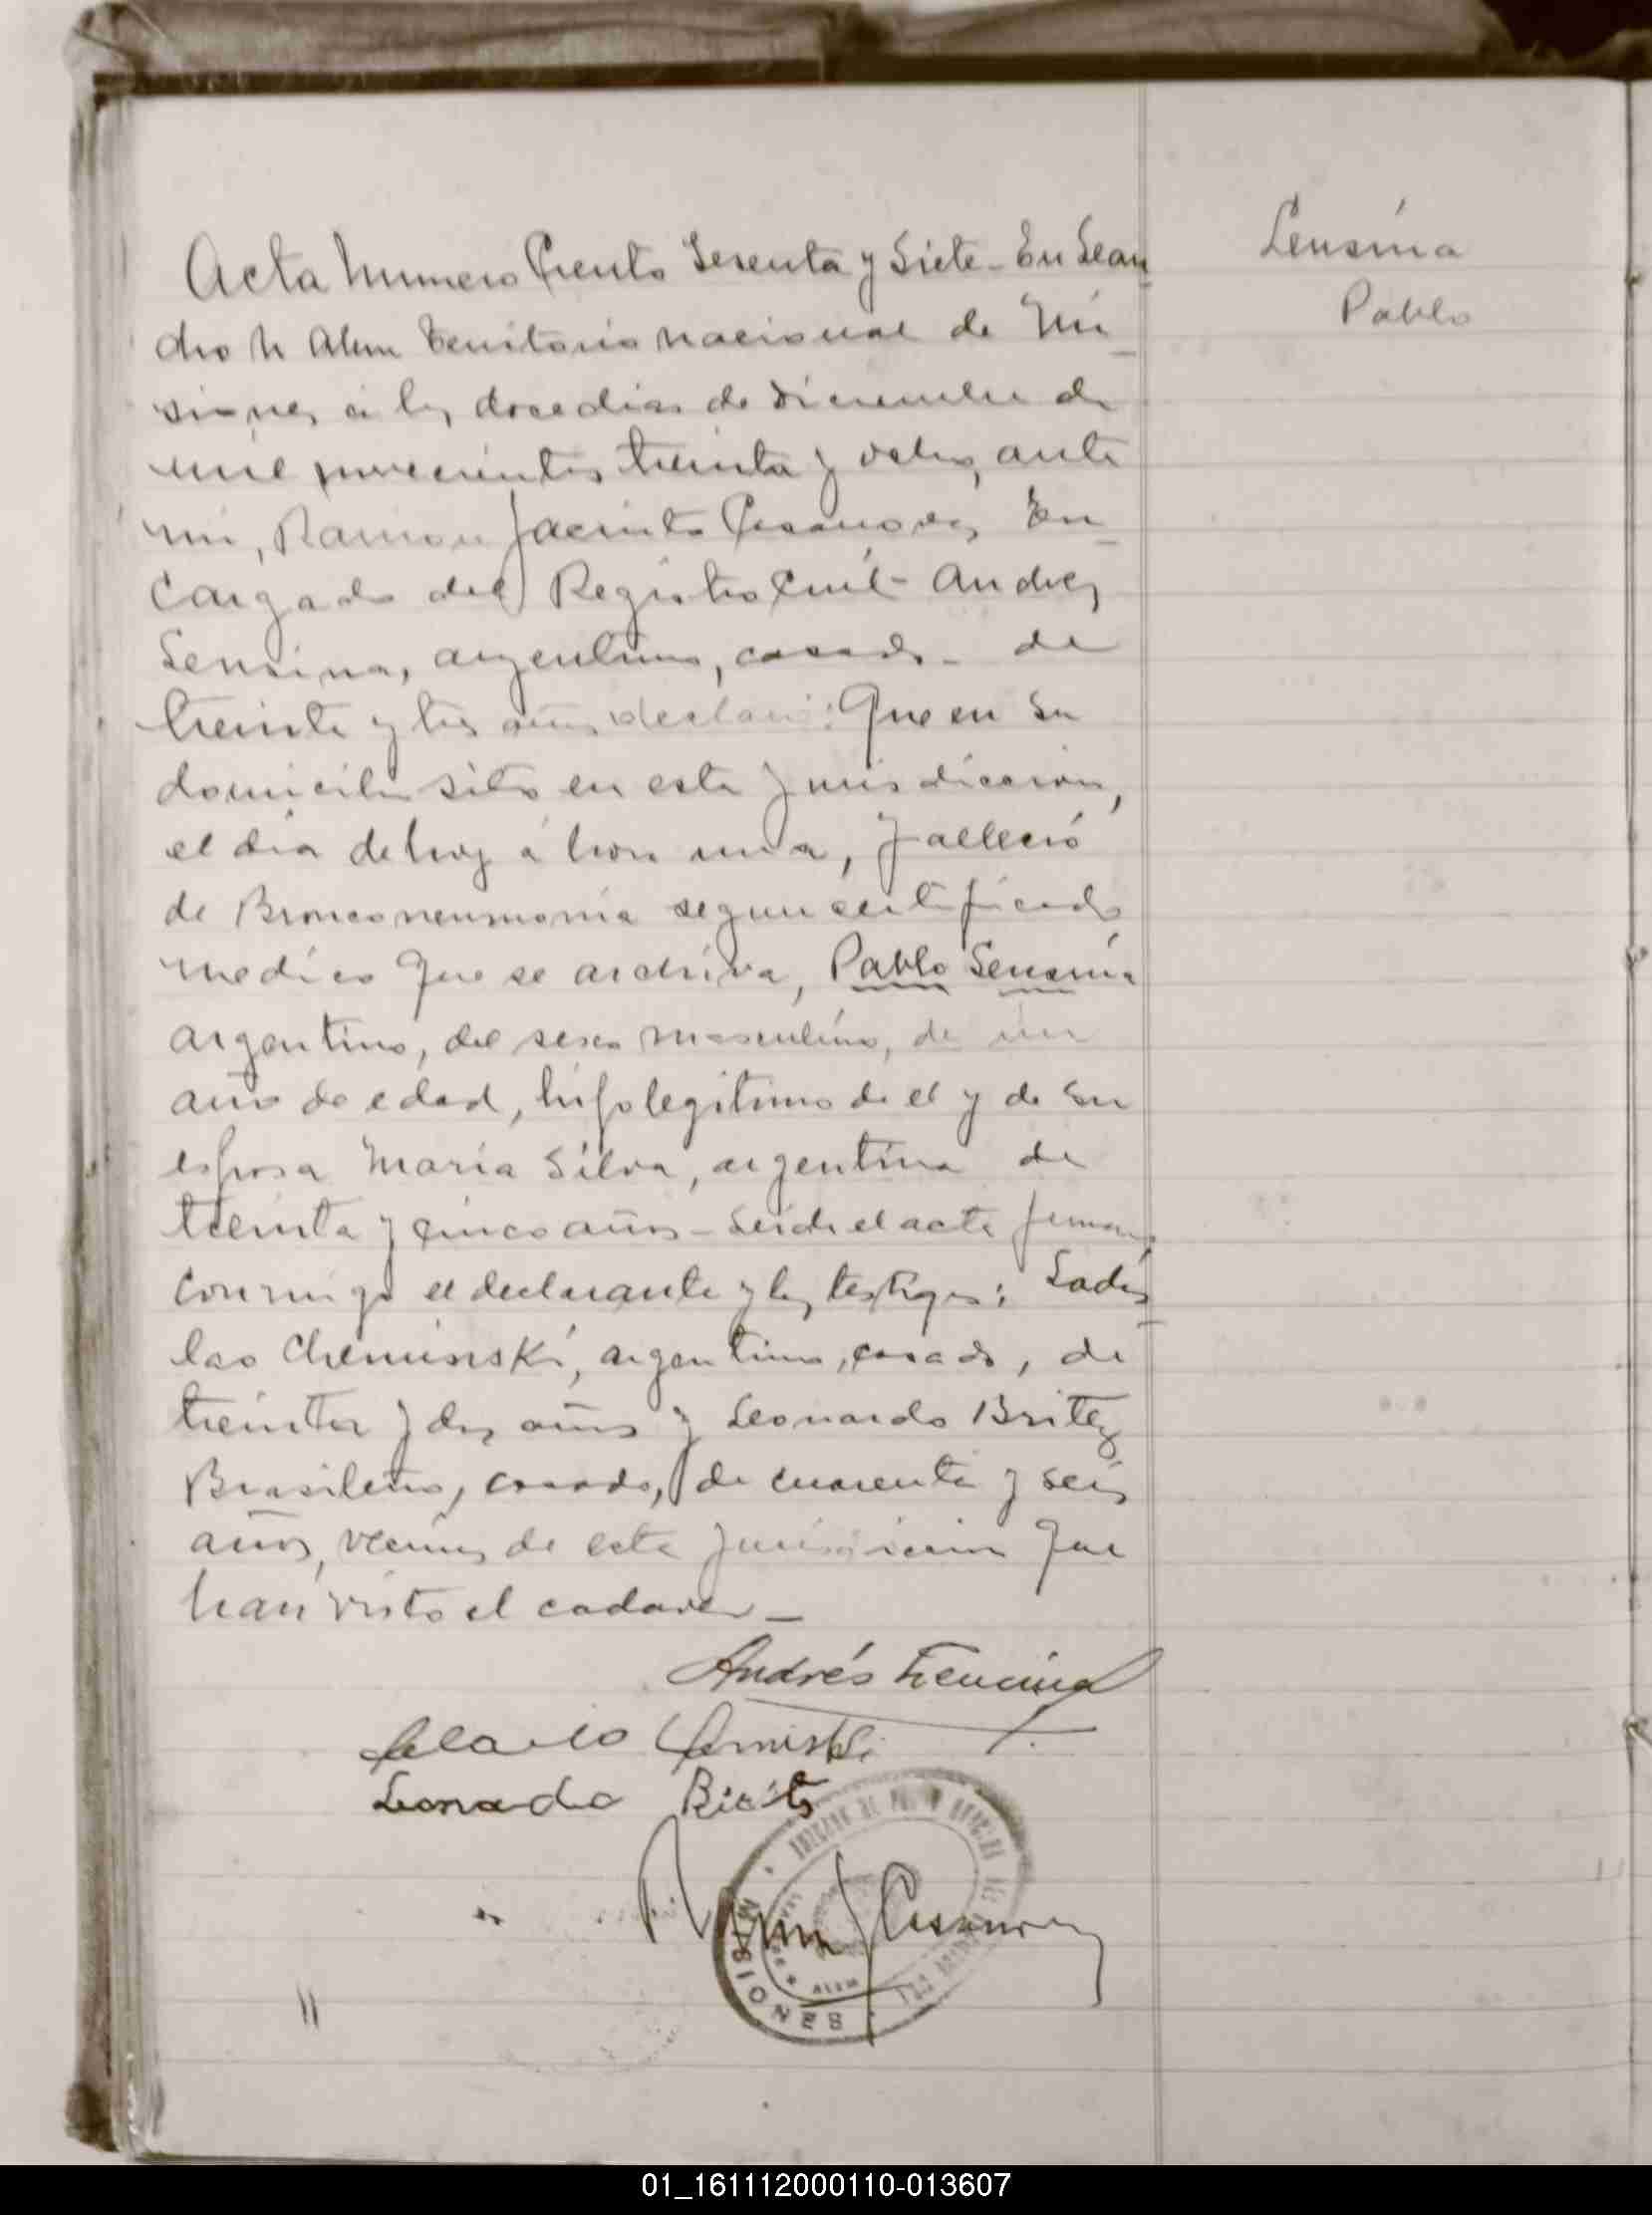 Acta Numero Ciento Sesenta y Siete - En Lean
dro N Alem Territorio nacional de Mi
siones a los doce dias de Diciembre de
mil novecientos treinta y ocho, ante
mi, Ramon Jacinto Casanova, En
cargado del Registro Civil - Andres
Sensina, argentino, casado - de
treinta y tres años declaró: Que en su
domicilio sito en esta jurisdiccion,
el dia de hoy á hora una, falleció
de Bronconeumonia segun certificado
medico que se archiva, Pablo Sensina
argentino, del sexo masculino, de un
año de edad, hijo legitimo de el y de su
esposa Maria Silva, argentina de
treinta y cinco años - Leida el acta firman
conmigo el declarante y los testigos: Ladis
lao Cheminski, argentino, casado, de
treinta y dos años y Leonardo Britez
Brasileño, casado, de cuarenta y seis
años, vecinos de esta jurisdiccion que
han visto el cadaver -
Lensina
Pablo
Andrés
Leonardo
MISIONES
ALEM
01_161112000110-013607